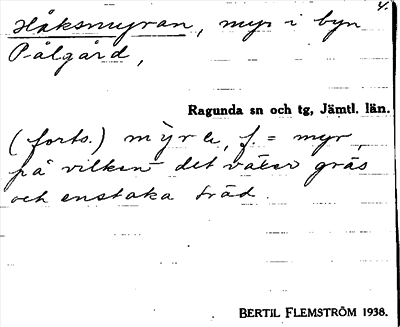 4.
Håksmyran, myr i byn
Pålgård,
Ragunda sn och tg, Jämtl. län.
(forts.) mỳr e, f. = myr,
på vilken det växer gräs
och enstaka träd.
BERTIL FLEMSTRÖM 1938.